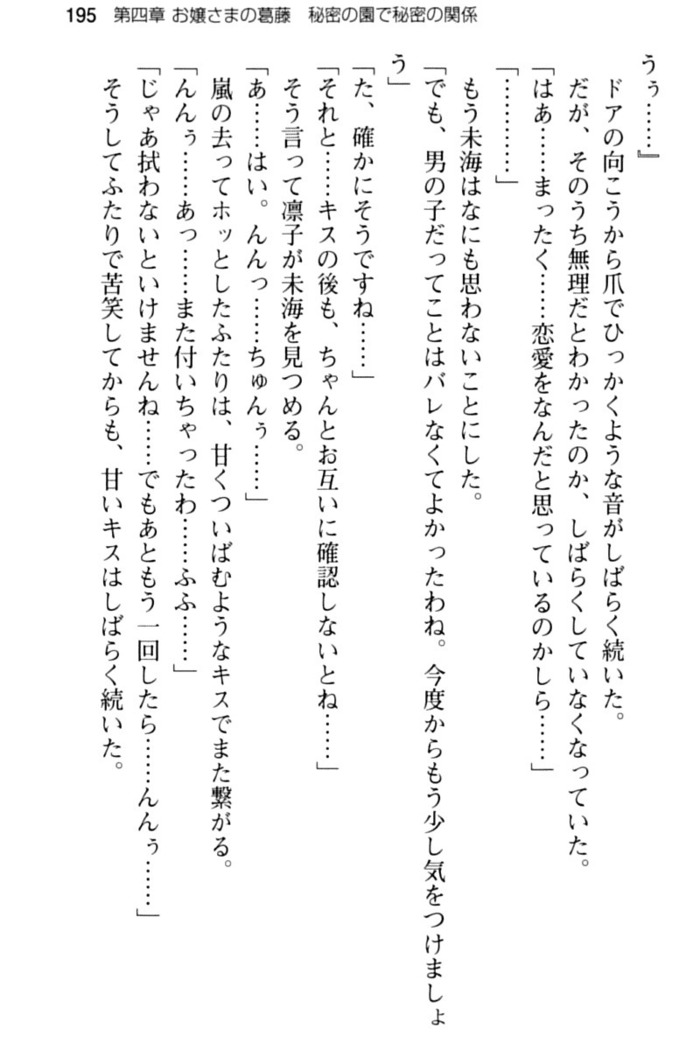 195 第四章 お嬢さまの葛藤 秘密の園で秘密の関係
うぅ……』
ドアの向こうから爪でひっかくような音がしばらく続いた。
だが、そのうち無理だとわかったのか、しばらくしていなくなっていた。
「はあ……まったく……恋愛をなんだと思っているのかしら……」
「…………」
もう未海はなにも思わないことにした。
「でも、男の子だってことはバレなくてよかったわね。今度からもう少し気をつけましょ
う」
「た、確かにそうですね……」
「それと……キスの後も、ちゃんとお互いに確認しないとね……」
そう言って凛子が未海を見つめる。
「あ……はい。んんっ……ちゅんぅ……」
嵐の去ってホッとしたふたりは、甘くついばむようなキスでまた繋がる。
「んんぅ……あっ……また付いちゃったわ……ふふ……」
「じゃあ拭わないといけませんね……でもあともう一回したら……んんぅ……」
そうしてふたりで苦笑してからも、甘いキスはしばらく続いた。